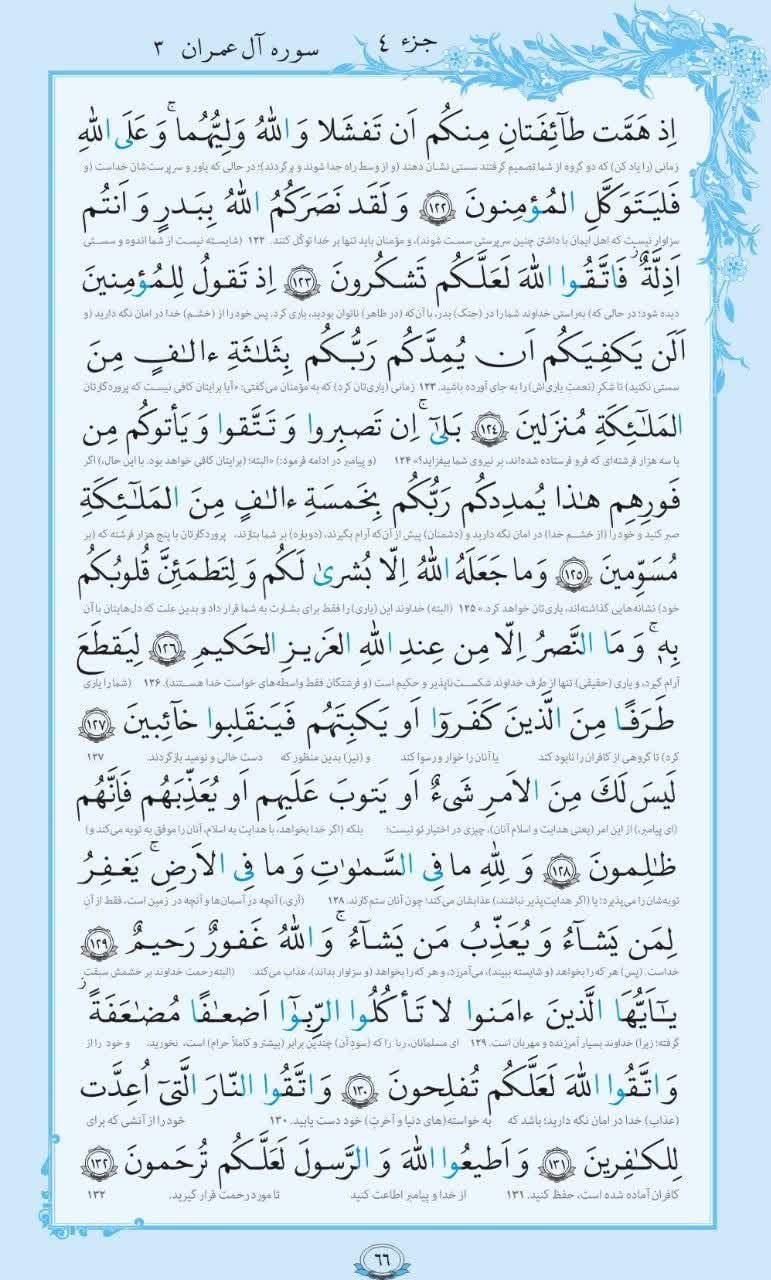 جزء ٤
سوره آل عمران ٣
اِذ هَمَّت طآئِفَتانِ مِنكُم اَن تَفشَلا وَاللهُ وَلِيُّهُما ۚ وَ عَلَى اللهِ
زمانی (را یاد کن) که دو گروه از شما تصمیم گرفتند سستی نشان دهند (و از وسط راه جدا شوند و برگردند)؛ در حالی که یاور و سرپرست‌شان خداست (و
فَليَتَوَكَّلِ المُؤمِنونَ ١٢٢ وَ لَقَد نَصَرَكُمُ اللهُ بِبَدرٍ وَ اَنتُم
سزاوار نیست که اهل ایمان با داشتن چنین سرپرستی سست شوند)، و مؤمنان باید تنها بر خدا توکّل کنند. ١٢٢ (شایسته نیست از شما اندوه و سستی
اَذِلَّةٌ ۖ فَاتَّقُوا اللهَ لَعَلَّكُم تَشكُرونَ ١٢٣ اِذ تَقولُ لِلمُؤمِنينَ
دیده شود؛ در حالی که) به‌راستی خداوند شما را در (جنگ) بدر، با آن‌که (در ظاهر) ناتوان بودید، یاری کرد. پس خود را از (خشم) خدا در امان نگه دارید (و
اَلَن يَكفِيَكُم اَن يُمِدَّكُم رَبُّكُم بِثَلاثَةِ ءالافٍ مِنَ
سستی نکنید) تا شکرِ (نعمتِ یاری‌اش) را به جای آورده باشید. ١٢٣ زمانی (یاری‌تان کرد) که به مؤمنان می‌گفتی: «آیا برایتان کافی نیست که پروردگارتان
المَلٰٓئِكَةِ مُنزَلينَ ١٢٤ بَلىٰٓ ۚ اِن تَصبِروا وَ تَتَّقوا وَ يَأتوكُم مِن
با سه هزار فرشته‌ای که فرو فرستاده شده‌اند، بر نیروی شما بیفزاید؟» ١٢٤ (و پیامبر در ادامه فرمود:) «البته؛ (برایتان کافی خواهد بود. با این حال،) اگر
فَورِهِم هٰذا يُمدِدكُم رَبُّكُم بِخَمسَةِ ءالافٍ مِنَ المَلٰٓئِكَةِ
صبر کنید و خود را (از خشم خدا) در امان نگه دارید و (دشمنان) پیش از آن‌که آرام بگیرند، (دوباره) بر شما بتازند، پروردگارتان با پنج هزار فرشته که (بر
مُسَوِّمينَ ١٢٥ وَ ما جَعَلَهُ اللهُ اِلّا بُشرىٰ لَكُم وَ لِتَطمَئِنَّ قُلوبُكُم
خود) نشانه‌هایی گذاشته‌اند، یاری‌تان خواهد کرد.» ١٢٥ (البته) خداوند این (یاری) را فقط برای بشارت به شما قرار داد و بدین علت که دل‌هایتان با آن
بِهٖ ۗ وَ مَا النَّصرُ اِلّا مِن عِندِ اللهِ العَزيزِ الحَكيمِ ١٢٦ لِيَقطَعَ
آرام گیرد، و یاری (حقیقی) تنها از طرف خداوند شکست‌ناپذیر و حکیم است (و فرشتگان فقط واسطه‌های خواست خدا هستند). ١٢٦ (شما را یاری
طَرَفًا مِنَ الَّذينَ كَفَرُوٓا اَو يَكبِتَهُم فَيَنقَلِبوا خآئِبينَ ١٢٧
کرد) تا گروهی از کافران را نابود کند یا آنان را خوار و رسوا کند و (نیز) بدین منظور که دست خالی و نومید بازگردند. ١٢٧
لَيسَ لَكَ مِنَ الاَمرِ شَىءٌ اَو يَتوبَ عَلَيهِم اَو يُعَذِّبَهُم فَاِنَّهُم
(ای پیامبر،) از این امر (یعنی هدایت و اسلام آنان)، چیزی در اختیار تو نیست؛ بلکه (اگر خدا بخواهد، با هدایت به اسلام، آنان را موفق به توبه می‌کند و)
ظٰلِمونَ ١٢٨ وَ لِلّٰهِ ما فِى السَّمٰوٰتِ وَ ما فِى الاَرضِ ۚ يَغفِرُ
توبه‌شان را می‌پذیرد؛ یا (اگر هدایت‌پذیر نباشند،) عذابشان می‌کند؛ چون آنان ستم‌کارند. ١٢٨ (آری،) آنچه در آسمان‌ها و آنچه در زمین است، فقط از آنِ
لِمَن يَشآءُ وَ يُعَذِّبُ مَن يَشآءُ ۚ وَاللهُ غَفورٌ رَحيمٌ ١٢٩
خداست. (پس) هر که را بخواهد (و شایسته ببیند)، می‌آمرزد، و هر که را بخواهد (و سزاوار بداند)، عذاب می‌کند. (البته رحمت خداوند بر خشمش سبقت
يٰٓاَيُّهَا الَّذينَ ءامَنوا لا تَأكُلُوا الرِّبوٰٓا اَضعٰفًا مُضٰعَفَةً ۖ
گرفته؛ زیرا) خداوند بسیار آمرزنده و مهربان است. ١٢٩ ای مسلمانان، ربا را که (سودِ آن) چندین برابر (بیشتر و کاملاً حرام) است، نخورید، و خود را از
وَ اتَّقُوا اللهَ لَعَلَّكُم تُفلِحونَ ١٣٠ وَ اتَّقُوا النّارَ الَّتىٓ اُعِدَّت
(عذاب) خدا در امان نگه دارید؛ باشد که به خواسته(های دنیا و آخرتِ) خود دست یابید. ١٣٠ خود را از آتشی که برای
لِلكٰفِرينَ ١٣١ وَ اَطيعُوا اللهَ وَ الرَّسولَ لَعَلَّكُم تُرحَمونَ ١٣٢
کافران آماده شده است، حفظ کنید. ١٣١ از خدا و پیامبر اطاعت کنید تا مورد رحمت قرار گیرید. ١٣٢
٦٦